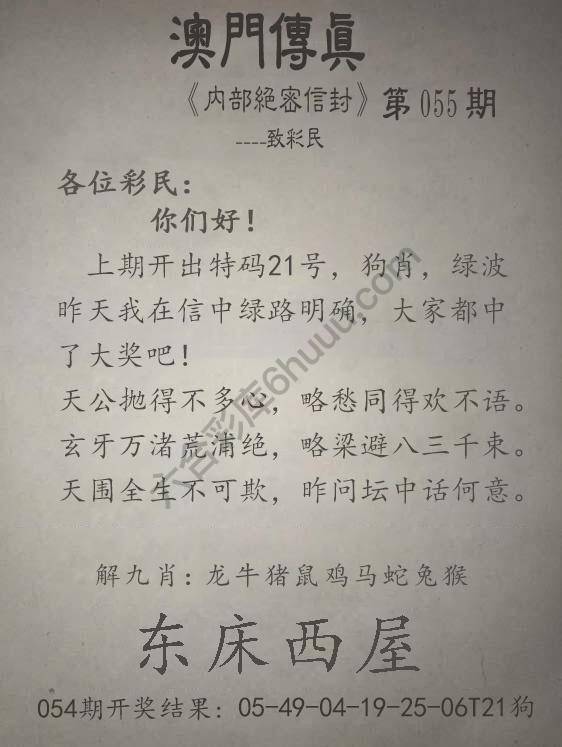 澳門傳眞
《内部絕密信封》第055期
----致彩民
各位彩民：
你们好！
上期开出特码21号，狗肖，绿波
昨天我在信中绿路明确，大家都中
了大奖吧！
天公抛得不多心，略愁同得欢不语。
玄牙万渚荒浦绝，略梁避八三千束。
天围全生不可欺，昨问坛中话何意。
解九肖：龙牛猪鼠鸡马蛇兔猴
东床西屋
054期开奖结果：05-49-04-19-25-06T21狗
六合彩库6huuu.com